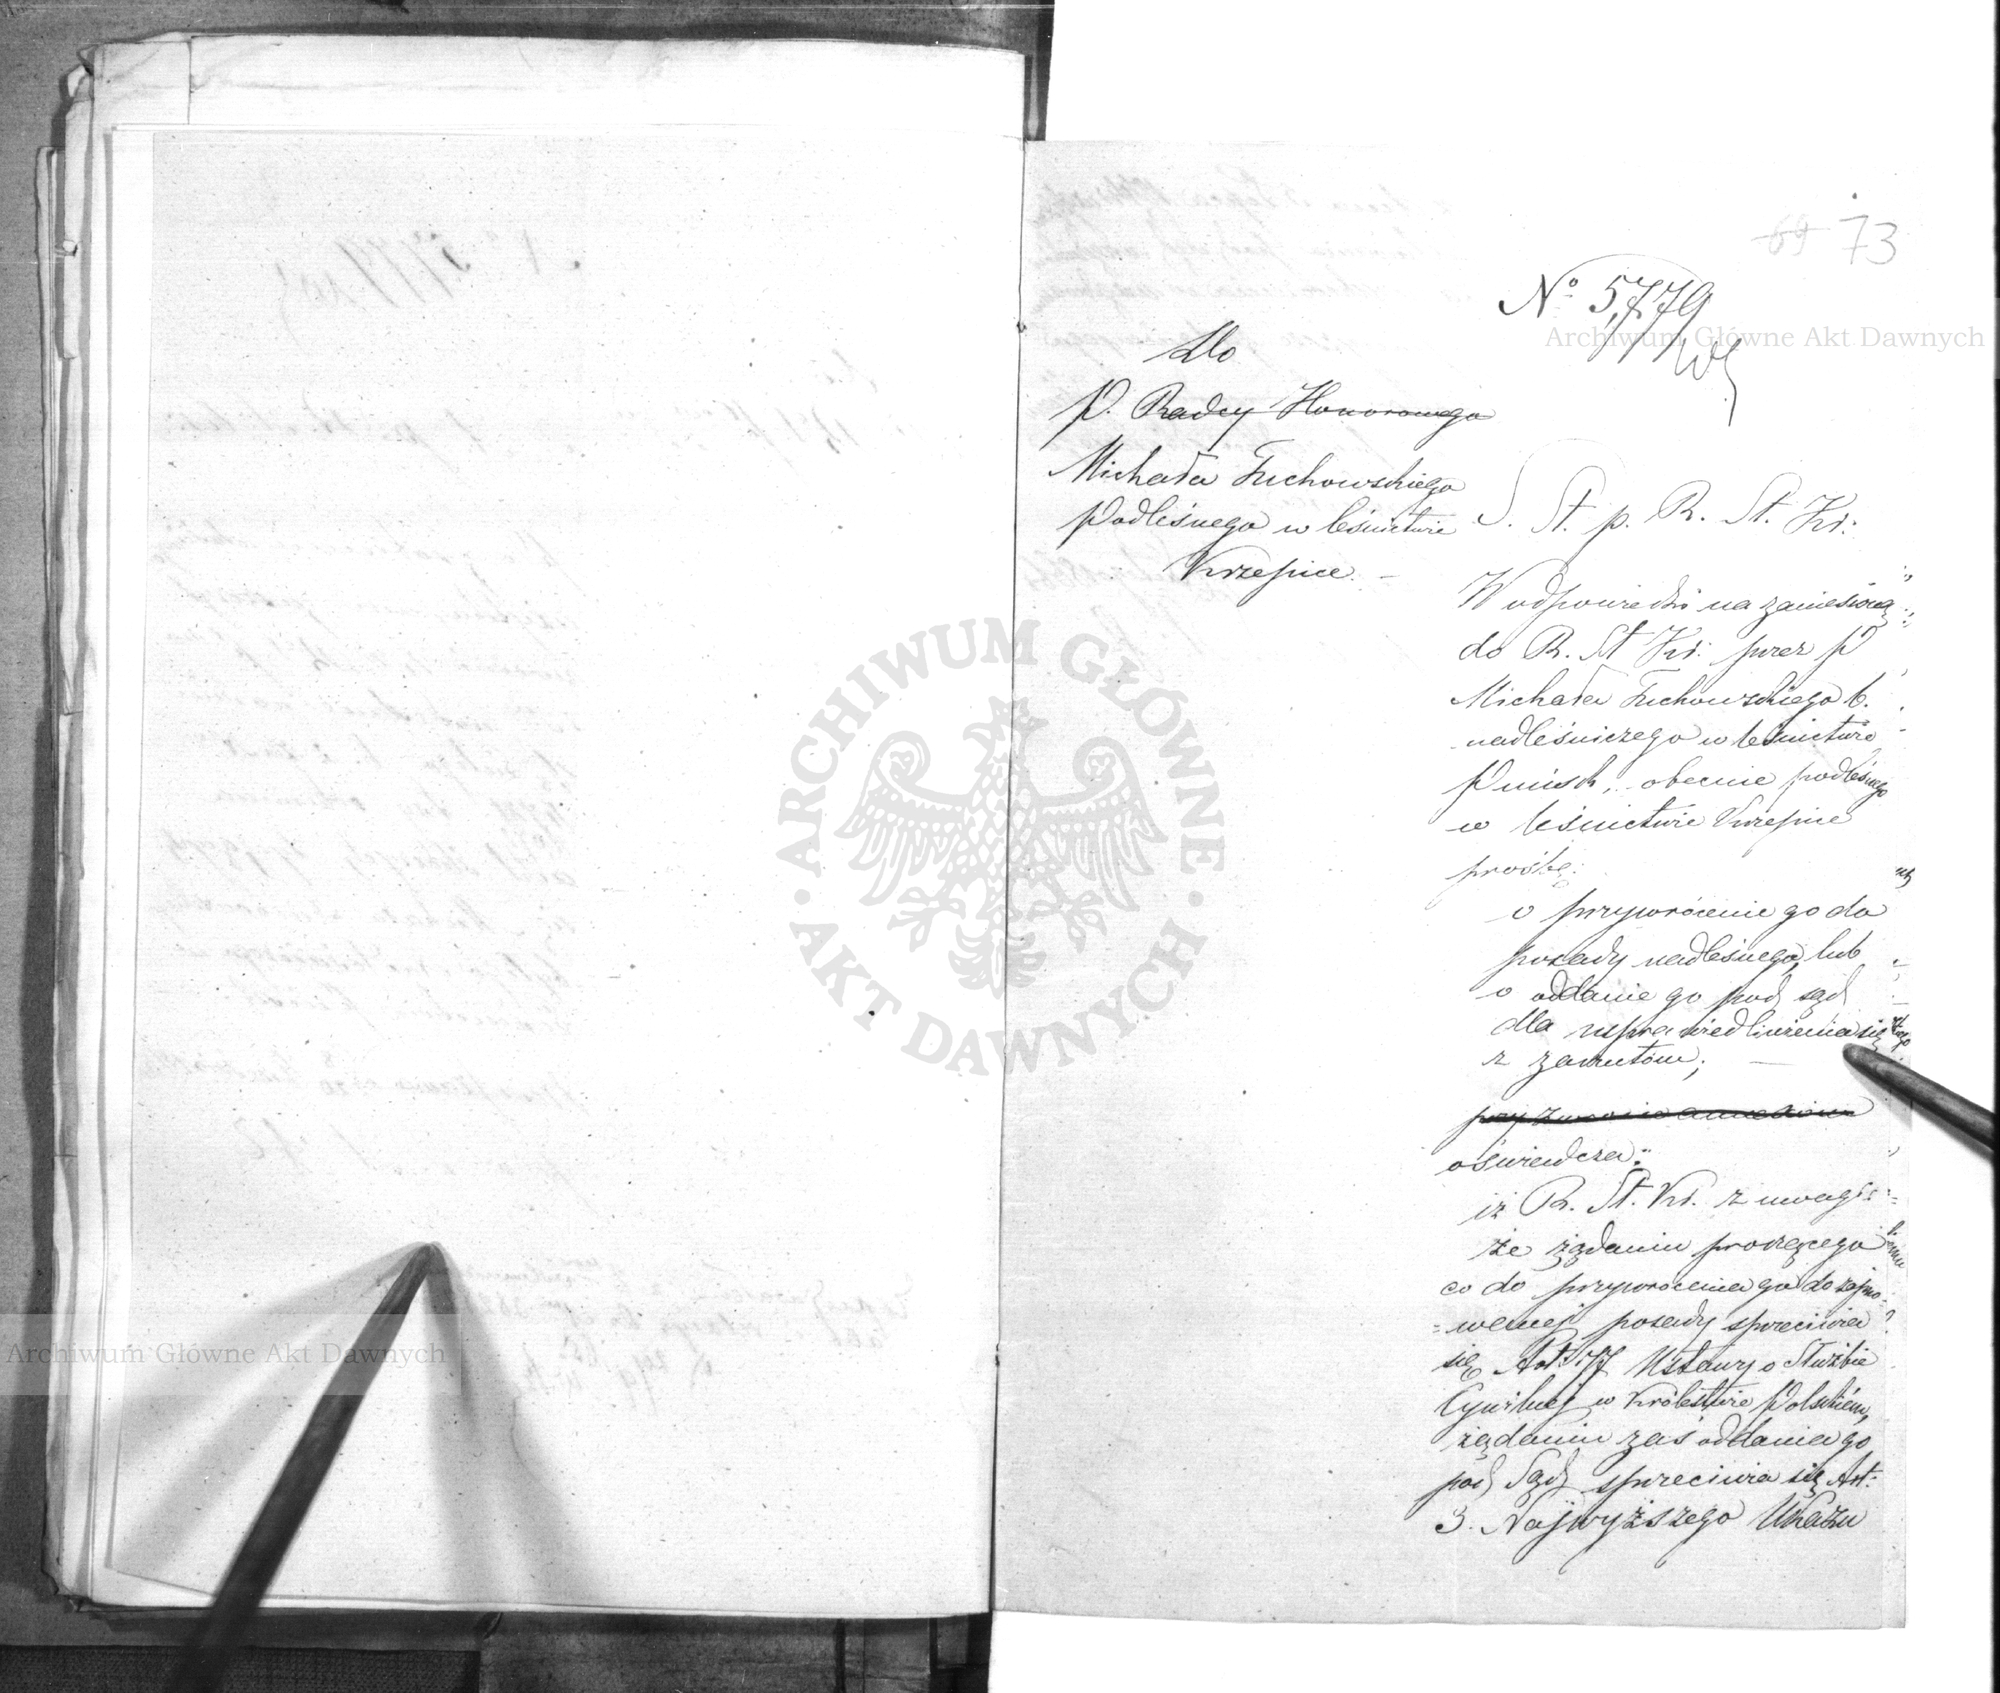 69 73
Nº 5,779
Do
P. Radcy Honorowego
Michała Tuchowskiego
Podleśnego w leśnictwie
Krzepice. –
S. St. p. R. St. Kr:
W odpowiedzi na zaniesioną
do R. St Kr: przez P
Michała Tuchowskiego b.
nadleśniczego w leśnictwie
obecnie podleśnego
w leśnictwie Krzepice
prośbę:
o przywrócenie go do
posady nadleśnego, lub
o oddanie go pod sąd
dla usprawiedliwienia się
z zarzutów; —
oświadcza:
iż R. St. Kr. z uwagi:
że żądaniu proszącego
co do przywrócenia go do zajmo-
=wanej posady sprzeciwia
się Art: 77 Ustawy o Służbie
Cywilnej w Królestwie Polskiém,
żądaniu zaś oddania go
pod Sąd sprzeciwia się Art:
3. Najwyższego Ukazu
ARCHIWUM GŁÓWNE · AKT DAWNYCH ·
Archiwum Główne Akt Dawnych
Archiwum Główne Akt Dawnych